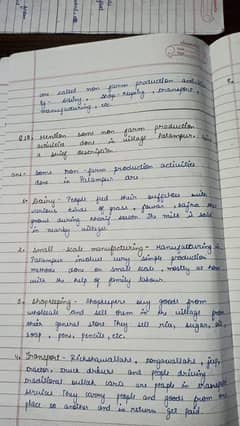 are called non farm production
Eg - dairy, shop-keeping, transport,
manufacturing, etc.
Mention some non farm production
activities done in village Palampur.
a brief description.
ans- Some non-farm production activities
done in Palampur are
1. Dairy - People fed their buffalos with
various kinds of grass, bajra
grows during rainy season. The milk is sold
in nearby villages.
2. Small-scale manufacturing - Manufacturing in
Palampur involves very simple production
methods done on small scale, mostly at home
with the help of family labour.
3. Shopkeeping - Shopkeepers buy goods from
wholesale and sell them in the village from
their general store. They sell rice, sugar, oil,
soap, pens, pencils, etc.
4. Transport - Rickshawallahs, tongawallahs, jeep,
tractor, truck drivers and people driving
traditional bullock carts are people in transport
services. They carry people and goods from one
place to another and in return get paid.